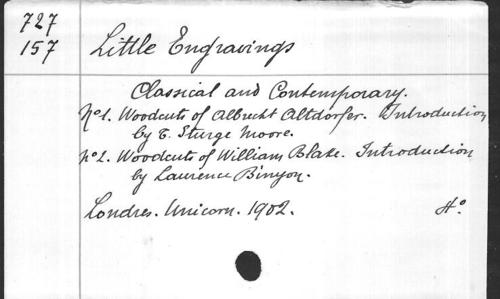 727
157
Little Engravings
Classical and Contemporary.
No1. Woodcuts of Albrecht Altdorfer. Introduction
by T. Sturge Moore.
No2. Woodcuts of William Blake. Introduction
by Laurence Binyon.
Londres. Unicorn. 1902. 4o